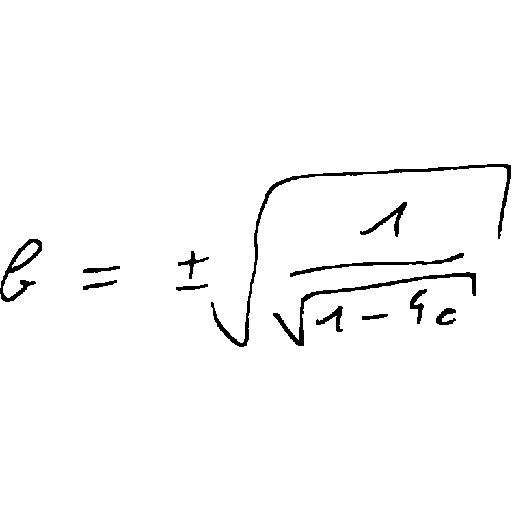 b = ±√(1/√(1-4c))